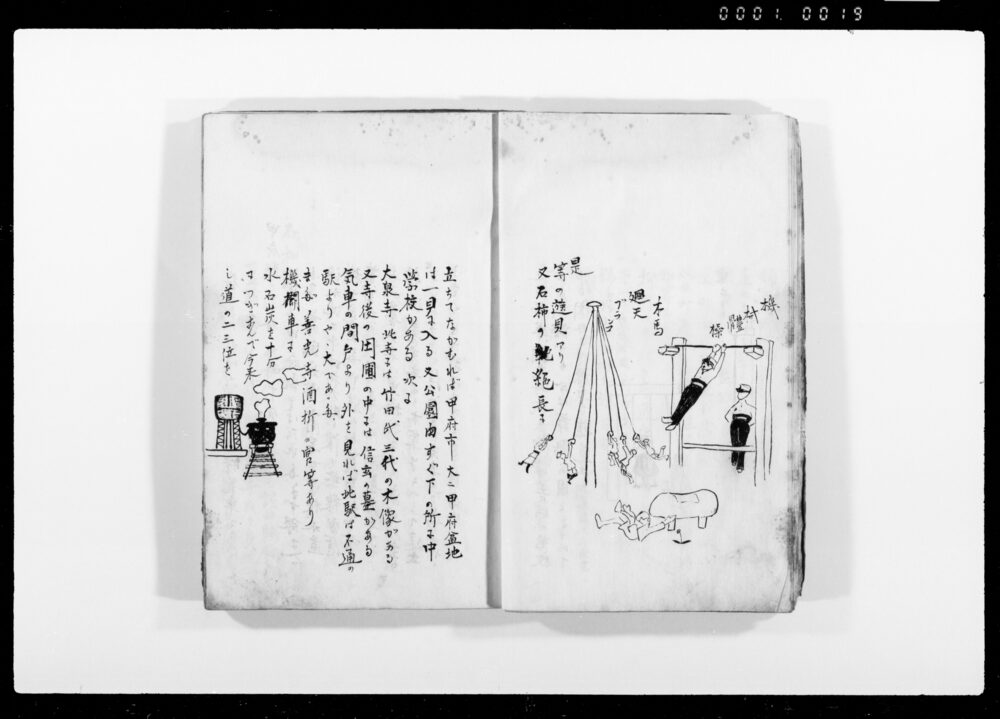 0001. 0019
機械體操
木馬
廻天ブラン
是等の遊具アリ
又石柿の
長ｻ
立ちてながむれば甲府市大ニ甲府盆地
は一目に入る又公園内すぐ下の所に中
学校がある次に
大泉寺此寺には竹田氏三代の木像がある
又寺後の田圃の中には信玄の墓がある
気車の間戸より外を見れば此駅は不通の
駅よりや、大である。
善光寺酒折の宮等あり
機関車は
水石炭を十分
につがこんで今来
し道の二三位を